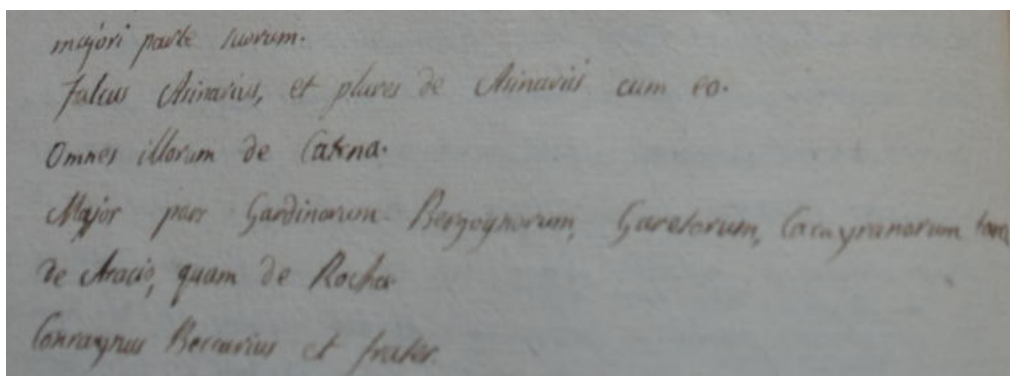 majori parte suorum.
Falcus Asinarius, et plures de Asinariis cum eo.
Omnes illorum de Catena.
Major pars Gardinorum Bergognorum, Garetorum,
de Aracio, quam de Rocha.
Conraynus Beccarius et frater.